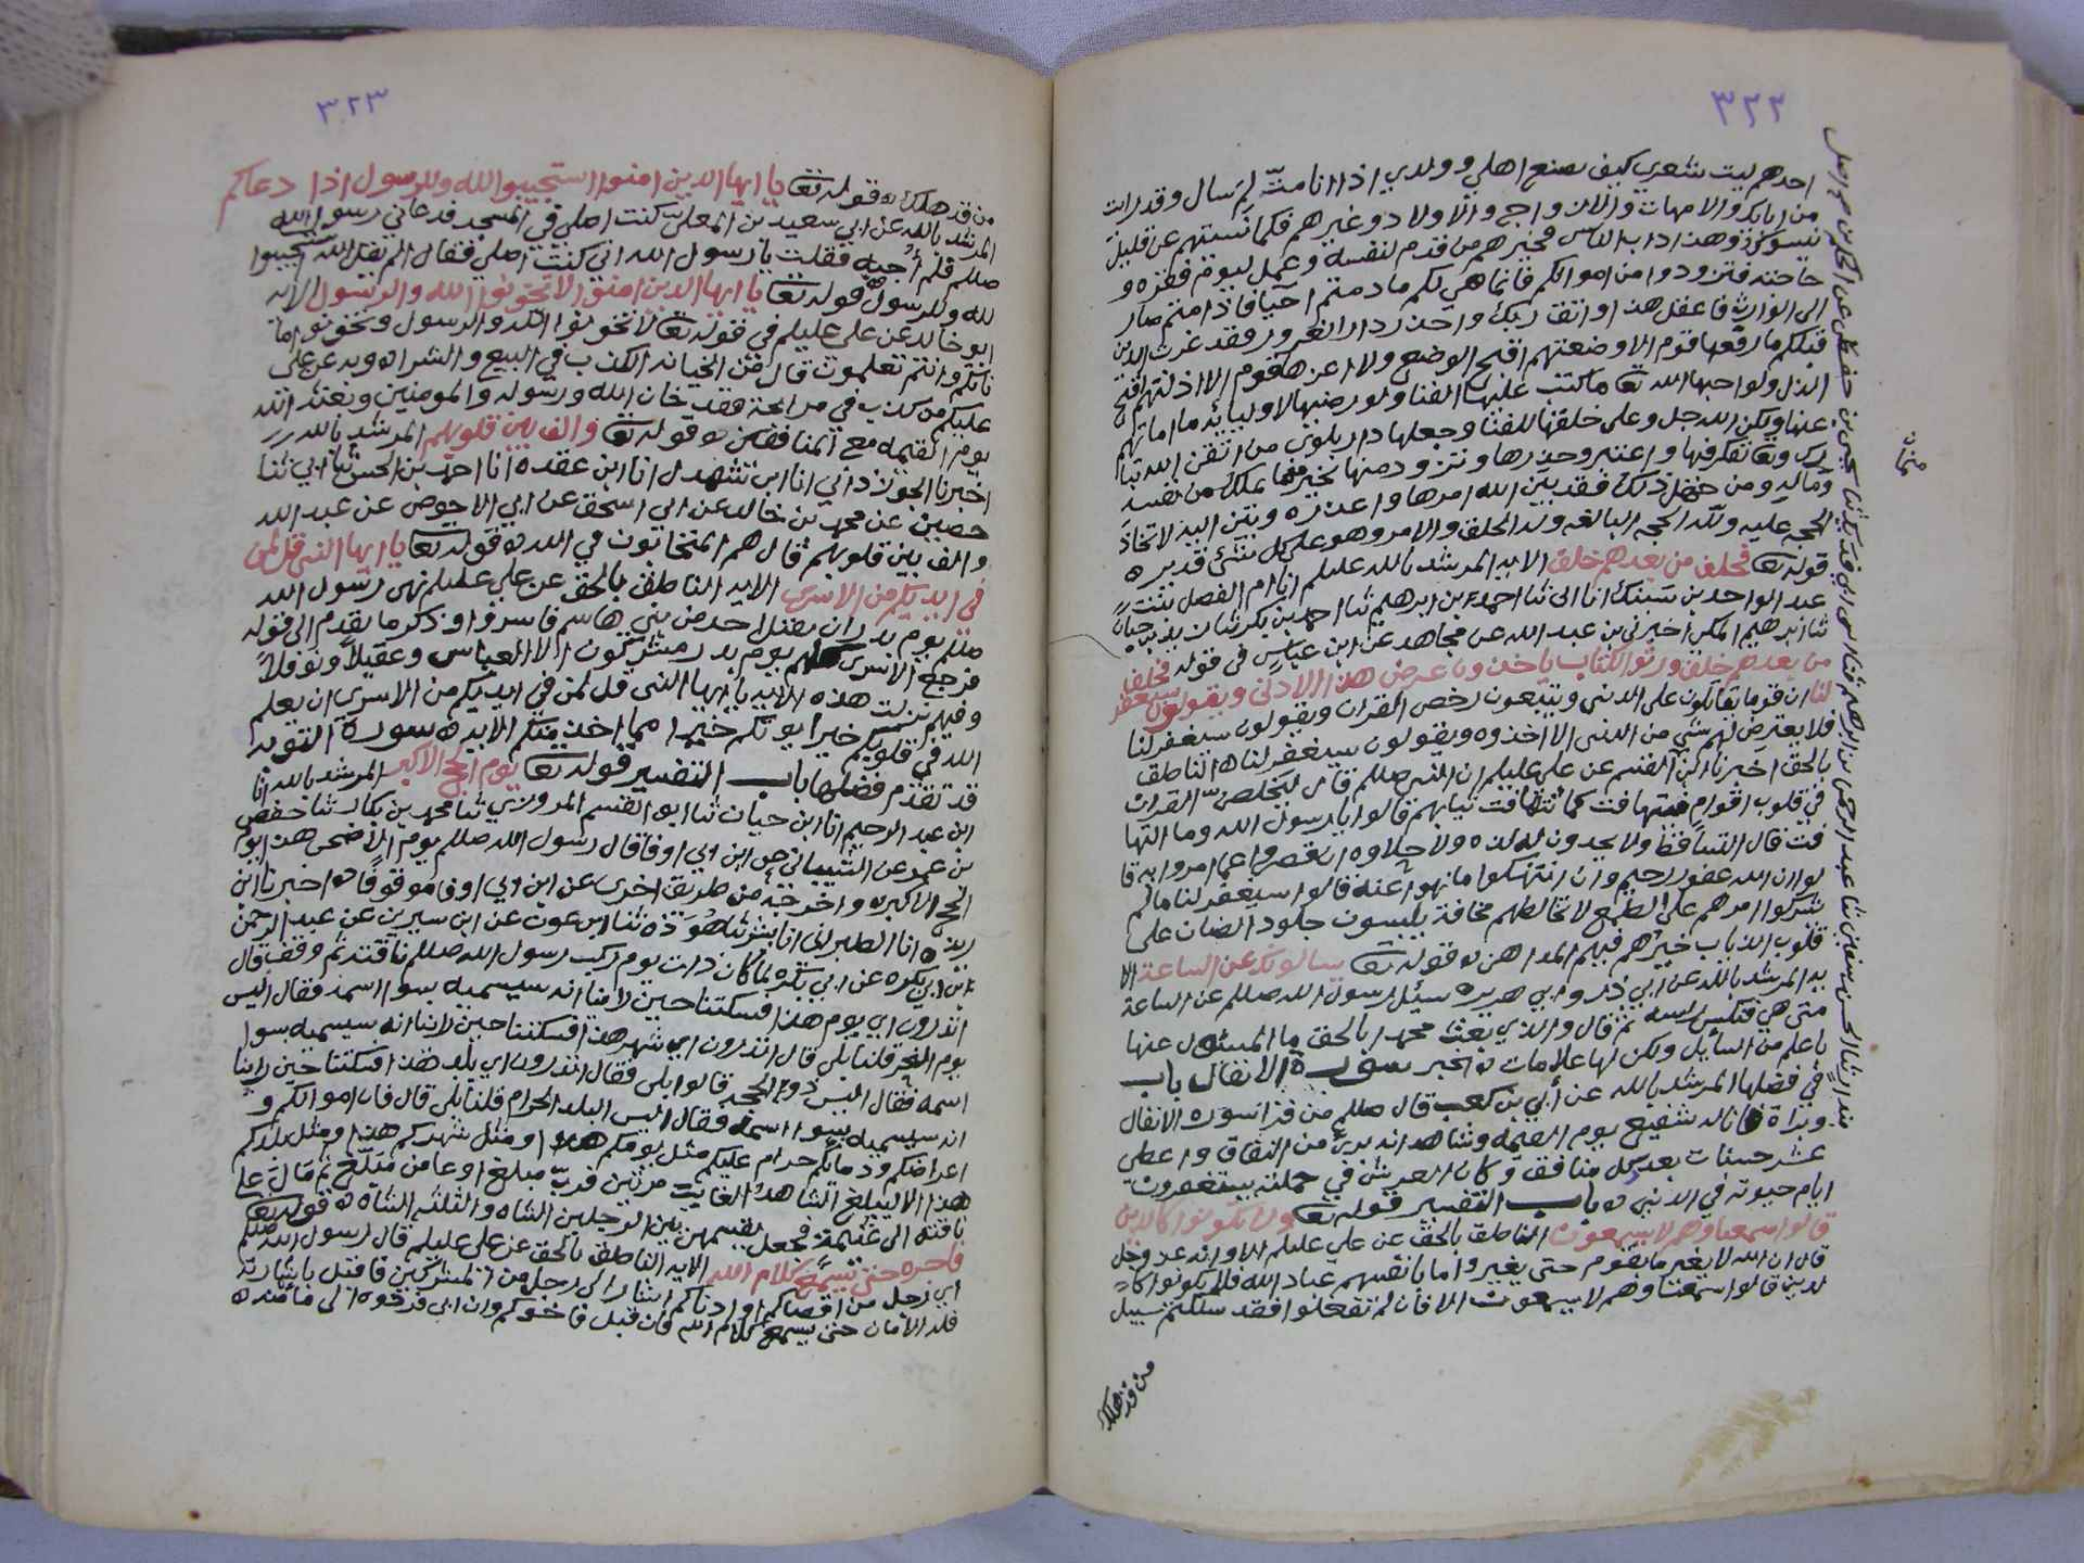 ٣٢٢
احدهم ليت شعري كيف يصنع اهلي وولدي اذا انا متّ لم يسال وقد رايت
من ابايكم والامهات والازواج والاولاد وغيرهم فكما نسيتهم عن قليل
تنسوكم وهذا داب الناس فخيرهم من قدم لنفسه وعمل ليوم فقره و
حاجته فتزودوا من اموالكم فانما هي لكم ما دمتم احيا فاذا متم صار
الى الوارث فاعقل هذا واتق ربك واحذر دار الغرور فقد غرت الذين
قبلكم ما رفعها قوم الا وضعتهم اقبح الوضع ولا اعزها قوم الا اذلتهم اقبح
الذل ولو احبها الله تعا ما كتب عليها الفنا ولو رضيها لاوليائه ما اماتهم
عنها ولكن الله جل وعلى خلقها للفنا وجعلها دار بلوى من اتقى الله تبا
رك وتعا تفكر فيها واعتبر وحذرها وتزود منها بخير ما يملك من نفسه
وماله ومن جهل ذلك فقد بين الله امرها واعذره وبين اليه لاتخاذ
الحجه عليه ولله الحجه البالغه وله الخلق والامر وهو على كل شئ قدير ه
قوله تعا فخلف من بعدهم خلف الايه المرشد بالله عليلم انا ام الفضل بنت
عبد الواحد بن انا ابي ثنا احمد بن ابرهيم ثنا احمد بن بكر ثنا
ثنا ابرهيم المكي اخبرني بن عبد الله عن مجاهد عن ابن عباس في قوله فخلف
من بعدهم خلف ورثوا الكتاب ياخذون عرض هذا الادنى ويقولون سيغفر
لنا ان قوما يقبلون على الدنيا ويتبعون رخص القران ويقولون سيغفر لنا
فلا يعترض لهم شي من الدنيا الا اخذوه ويقولون سيغفر لنا ه الناطق
بالحق اخبرنا ابن القسم عن علي عليلم ان النبي صللم قال ليخلص القران
في قلوب اقوام متهافت كما تتهافت ثيابهم قالوا يا رسول الله وما التها
فت قال التساقط ولا يجدون له لذه ولا حلاوه ان قصروا عما امروا به قا
لوا ان الله غفور رحيم وان انتهكوا ما نهوا عنه قالوا سيغفر لنا ما لم
نشرك امرهم على الطمع لا تخالطهم مخافة يلبسون جلود الضان على
قلوب الذياب خيرهم فيهم المداهن ه قوله تعا يسالونك عن الساعة الا
يه المرشد بالله عن ابي ذر وابي هريره سئل رسول الله صللم عن الساعة
متى هي فنكس راسه ثم قال والذي بعث محمدا بالحق ما المسئول عنها
باعلم من السائل ولكن لها علامات ه الخبر سورة الانفال باب
في فضلها المرشد بالله عن أبي بن كعب قال صللم من قرا سورة الانفال
وبراة فانا له شفيع يوم القيمه وشاهد انه بري من النفاق واعطي
عشر حسنات بعدد كل منافق وكان العرش في حملته يستغفرون
ايام حيوته في الدنيا ه باب التفسير قوله تعا ولا تكونوا كالذين
قالوا سمعنا وهم لا يسمعون الناطق بالحق عن علي عليلم الا وانه عز وجل
قال ان الله لا يغير ما بقوم حتى يغيروا ما بانفسهم عباد الله فلا تكونوا كا
لذين قالوا سمعنا وهم لا يسمعون الا فان لم تفعلوا فقد سلكتم سبيل
من قد هلك
٣٢٣
من قد هلك ه قوله تعا يا ايها الذين امنوا استجيبوا لله وللرسول اذا دعاكم
المرشد بالله عن ابي سعيد بن المعلى كنت اصلي في المسجد فدعاني رسول الله
صللم فلم أجبه فقلت يا رسول الله اني كنت اصلي فقال الم يقل الله استجيبوا
لله وللرسول ه قوله تعا يا ايها الذين امنوا لا تخونوا الله والرسول الايه
ابو خالد عن علي عليلم في قوله تعا لا تخونوا الله والرسول وتخونوا اما
ناتكم وانتم تعلمون قال من الخيانه الكذب في البيع والشرا ه وبه عن علي
عليلم من كذب في مرابحة فقد خان الله ورسوله والمومنين وبعثه الله
يوم القيمه مع المنافقين ه قوله تعا والف بين قلوبهم المرشد بالله
اخبرنا الجوزداني انا ابن شهدل انا ابن عقده انا احمد بن الحسن ثنا ابي ثنا
حصين عن محمد بن خالد عن ابي اسحق عن ابي الاحوص عن عبد الله
والف بين قلوبهم قال هم المتحابون في الله ه قوله تعا يا ايها النبي قل لمن
في ايديكم من الاسرى الايه الناطق بالحق عن علي عليلم نهى رسول الله
صللم يوم بدر ان يقتل احد من بني هاشم فاسروا وذكر ما تقدم الى قوله
فرجع الاسرى كلهم يوم بدر مشركون الا العباس وعقيلاً ونوفلاً
وفيهم نزلت هذه الايه يا ايها النبي قل لمن في ايديكم من الاسرى ان يعلم
الله في قلوبكم خيرا يوتكم خيرا مما اخذ منكم الايه ه سورة التوبه
قد تقدم فضلها باب التفسير قوله تعا يوم الحج الاكبر المرشد بالله انا
ابن عبد الرحيم انا ابن حيان ثنا ابو القسم المروزي ثنا محمد بن بكار ثنا حفص
بن عمر عن الشيباني عن ابن ابي اوفا قال رسول الله صللم يوم الاضحى هذا يوم
الحج الاكبر ه واخرجه من طريق اخرى عن ابن ابي اوفى موقوفًا ه اخبرنا ابن
ريذه انا الطبراني انا بشر ثنا هوذه ثنا ابن عون عن ابن سيرين عن عبد الرحمن
ابن ابي بكره عن ابي بكره لما كان ذات يوم ركب رسول الله صللم ناقته ثم وقف قال
اتدرون اي يوم هذا فسكتنا حين راينا انه سيسميه سوا اسمه فقال اليس
يوم النحر قلنا بلى قال اتدرون اي شهر هذا فسكتنا حين راينا انه سيسميه سوا
اسمه فقال اليس ذو الحجه قالوا بلى فقال اتدرون اي بلد هذا فسكتنا حين راينا
انه سيسميه سوا اسمه فقال اليس البلد الحرام قلنا بلى قال فان اموالكم و
اعراضكم ودماءكم حرام عليكم مثل يومكم هذا ومثل شهركم هذا ومثل بلدكم
هذا الا ليبلغ الشاهد الغايب مرتين فربّ مبلغ اوعا من مبلّغ ثم مال على
ناقته الى غنيمة فجعل يقسمهن بين الرجلين الشاه والثلثه الشاه ه قوله تعا
فاجره حتى يسمع كلام الله الايه الناطق بالحق عن علي عليلم قال رسول الله صللم
اي رجل من اقصاكم او ادناكم اشار الى رجل من المشركين فاقبل باشارته
فله الامان حتى يسمع كلام الله فان قبل فاخوكم وان ابى فردوه الى مامنه ه